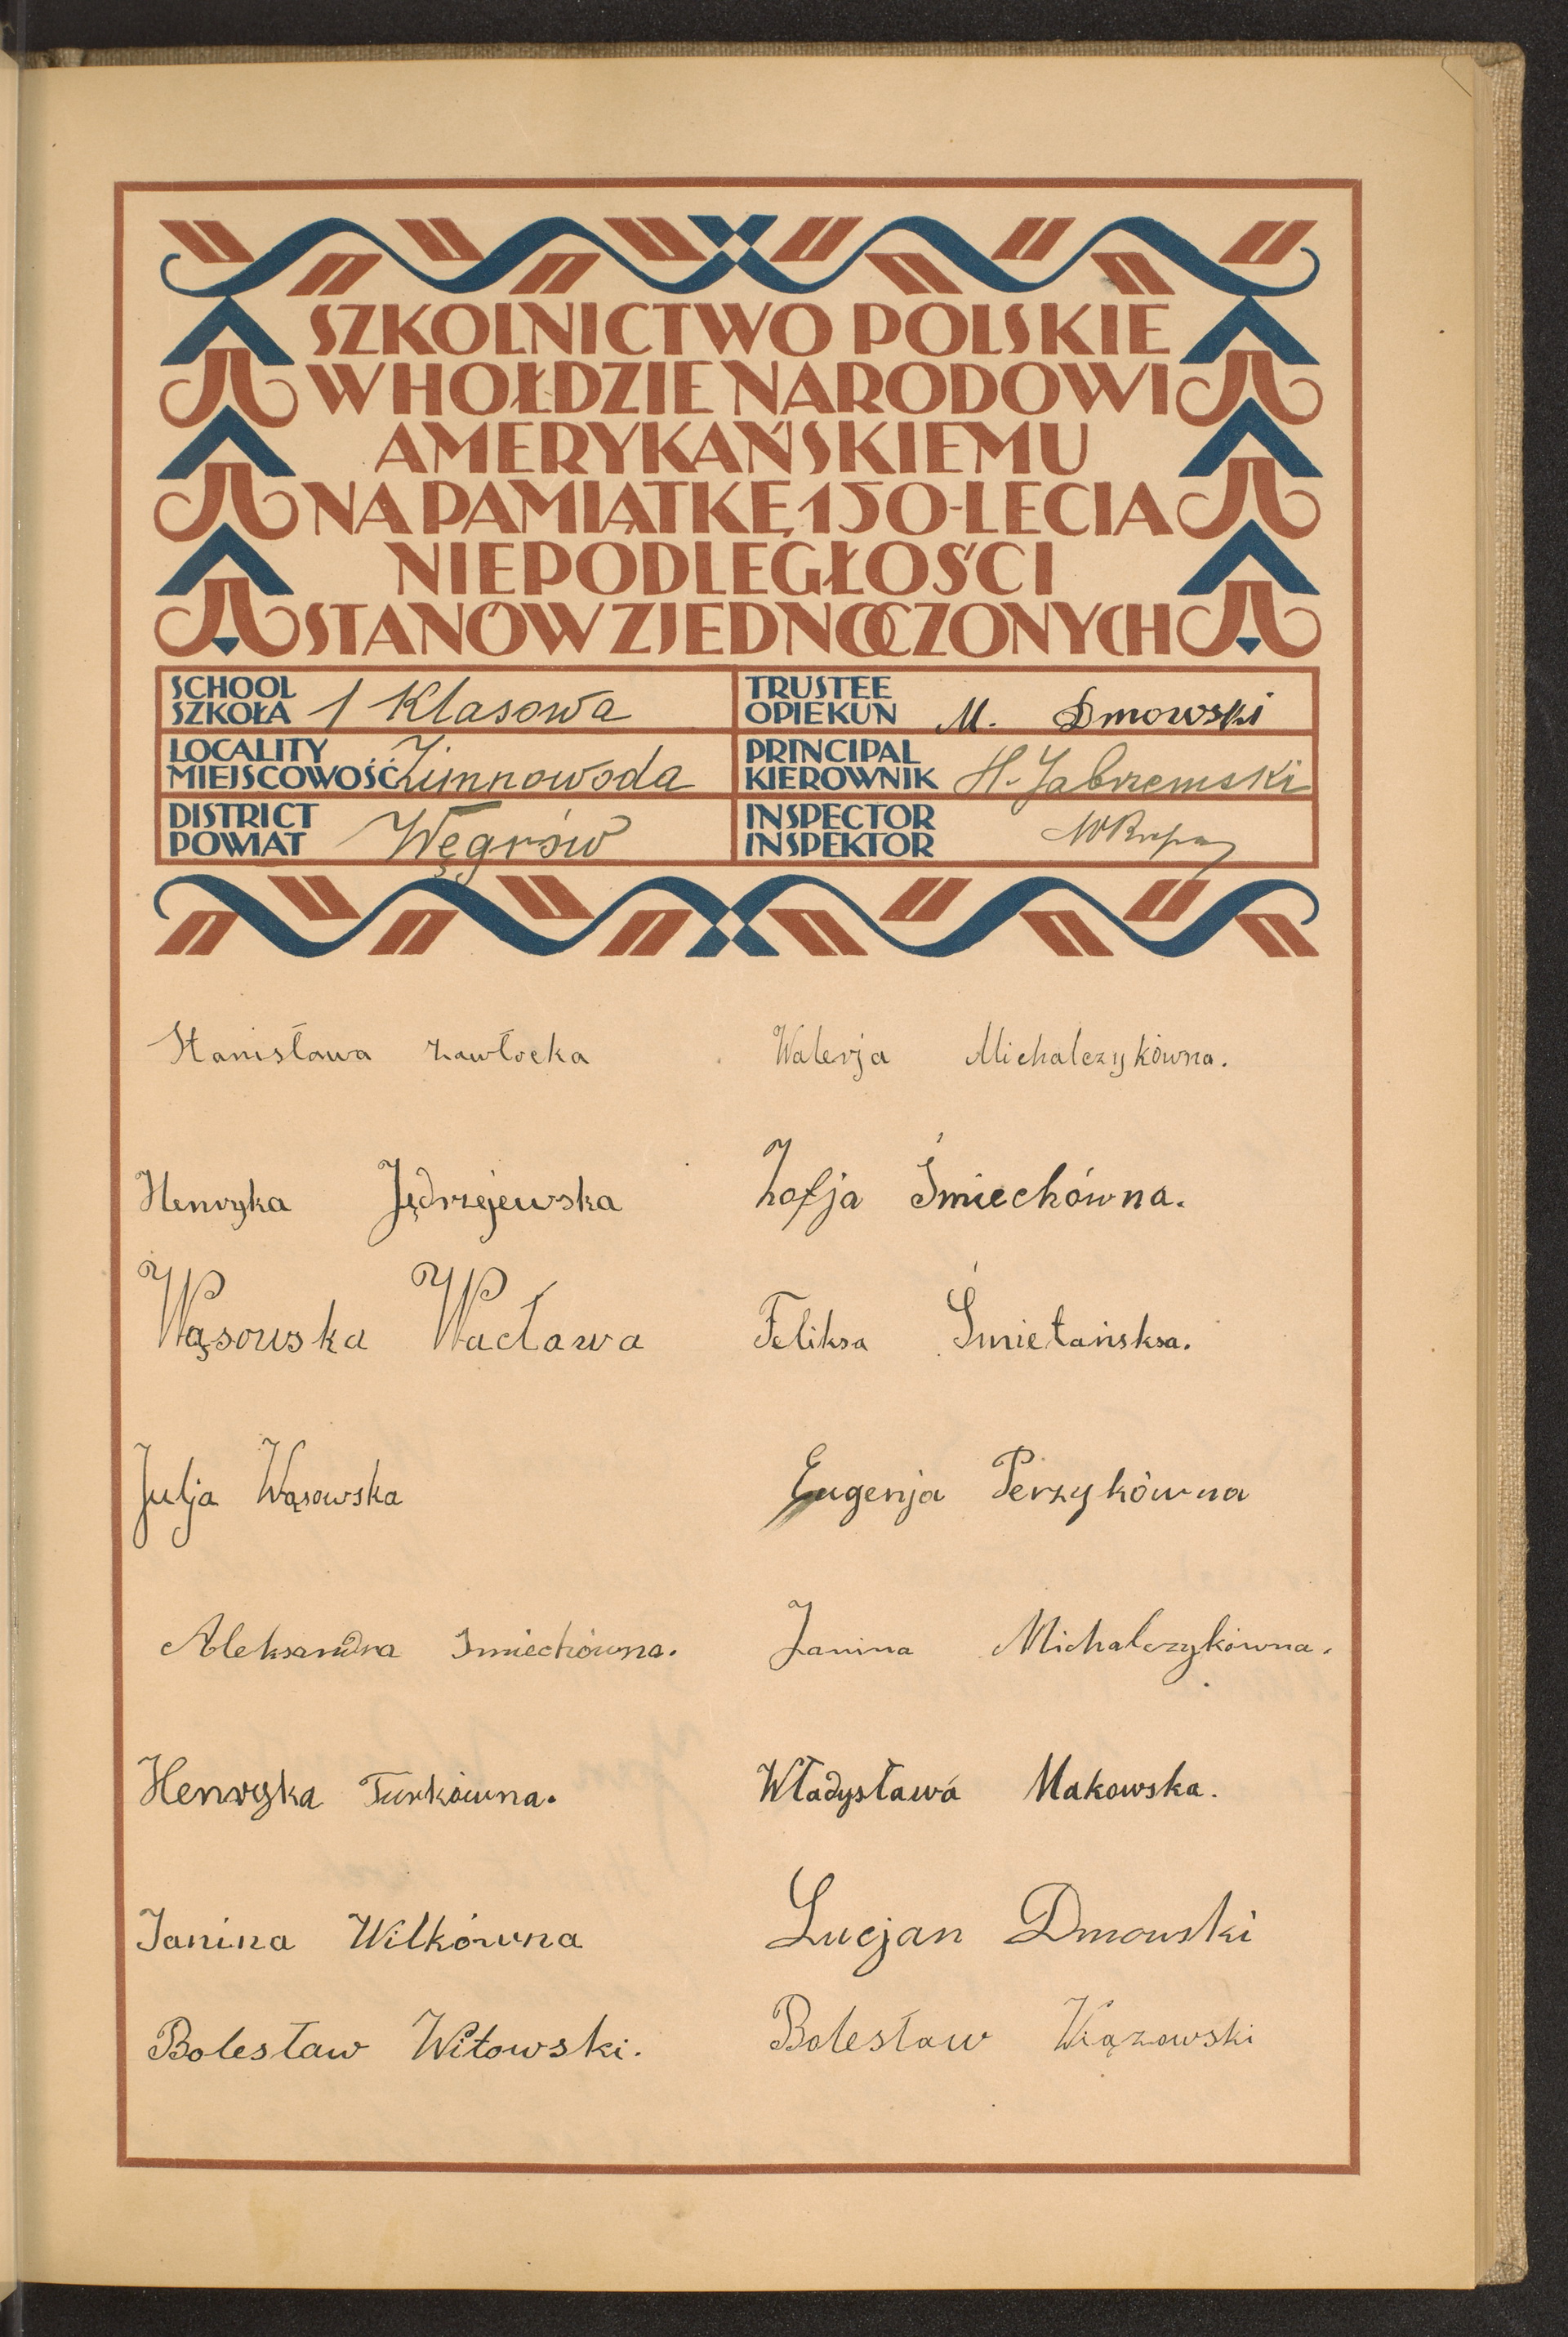 SZKOLNICTWO POLSKIE
W HOŁDZIE NARODOWI
AMERYKAŃSKIEMU
NA PAMIĄTKĘ 150-LECIA
NIEPODLEGŁOŚCI
STANÓW ZJEDNOCZONYCH
SCHOOL
SZKOŁA 1 Klasowa
TRUSTEE
OPIEKUN M. Dmowski
LOCALITY
MIEJSCOWOŚĆ Zimnowoda
PRINCIPAL
KIEROWNIK H. Jabrzemski
DISTRICT
POWIAT Węgrów
INSPECTOR
INSPEKTOR
Stanisława Zawłocka
Walerja Michalczykówna.
Henryka Jędrzejewska
Zofja Śmiechówna.
Wąsowska Wacława
Feliksa Śmietańsksa.
Julja Wąsowska
Eugenja Perzykówna
Aleksandra Smiechówna.
Janina Michalczykówna.
Henryka Turkówna.
Władysława Makowska.
Janina Wilkówna
Lucjan Dmowski
Bolesław Witowski.
Bolesław Wiązowski